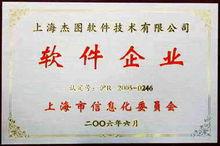 上海杰图软件技术有限公司
软件企业
认定号：沪R-2005-0246
上海市信息化委员会
二〇〇六年六月